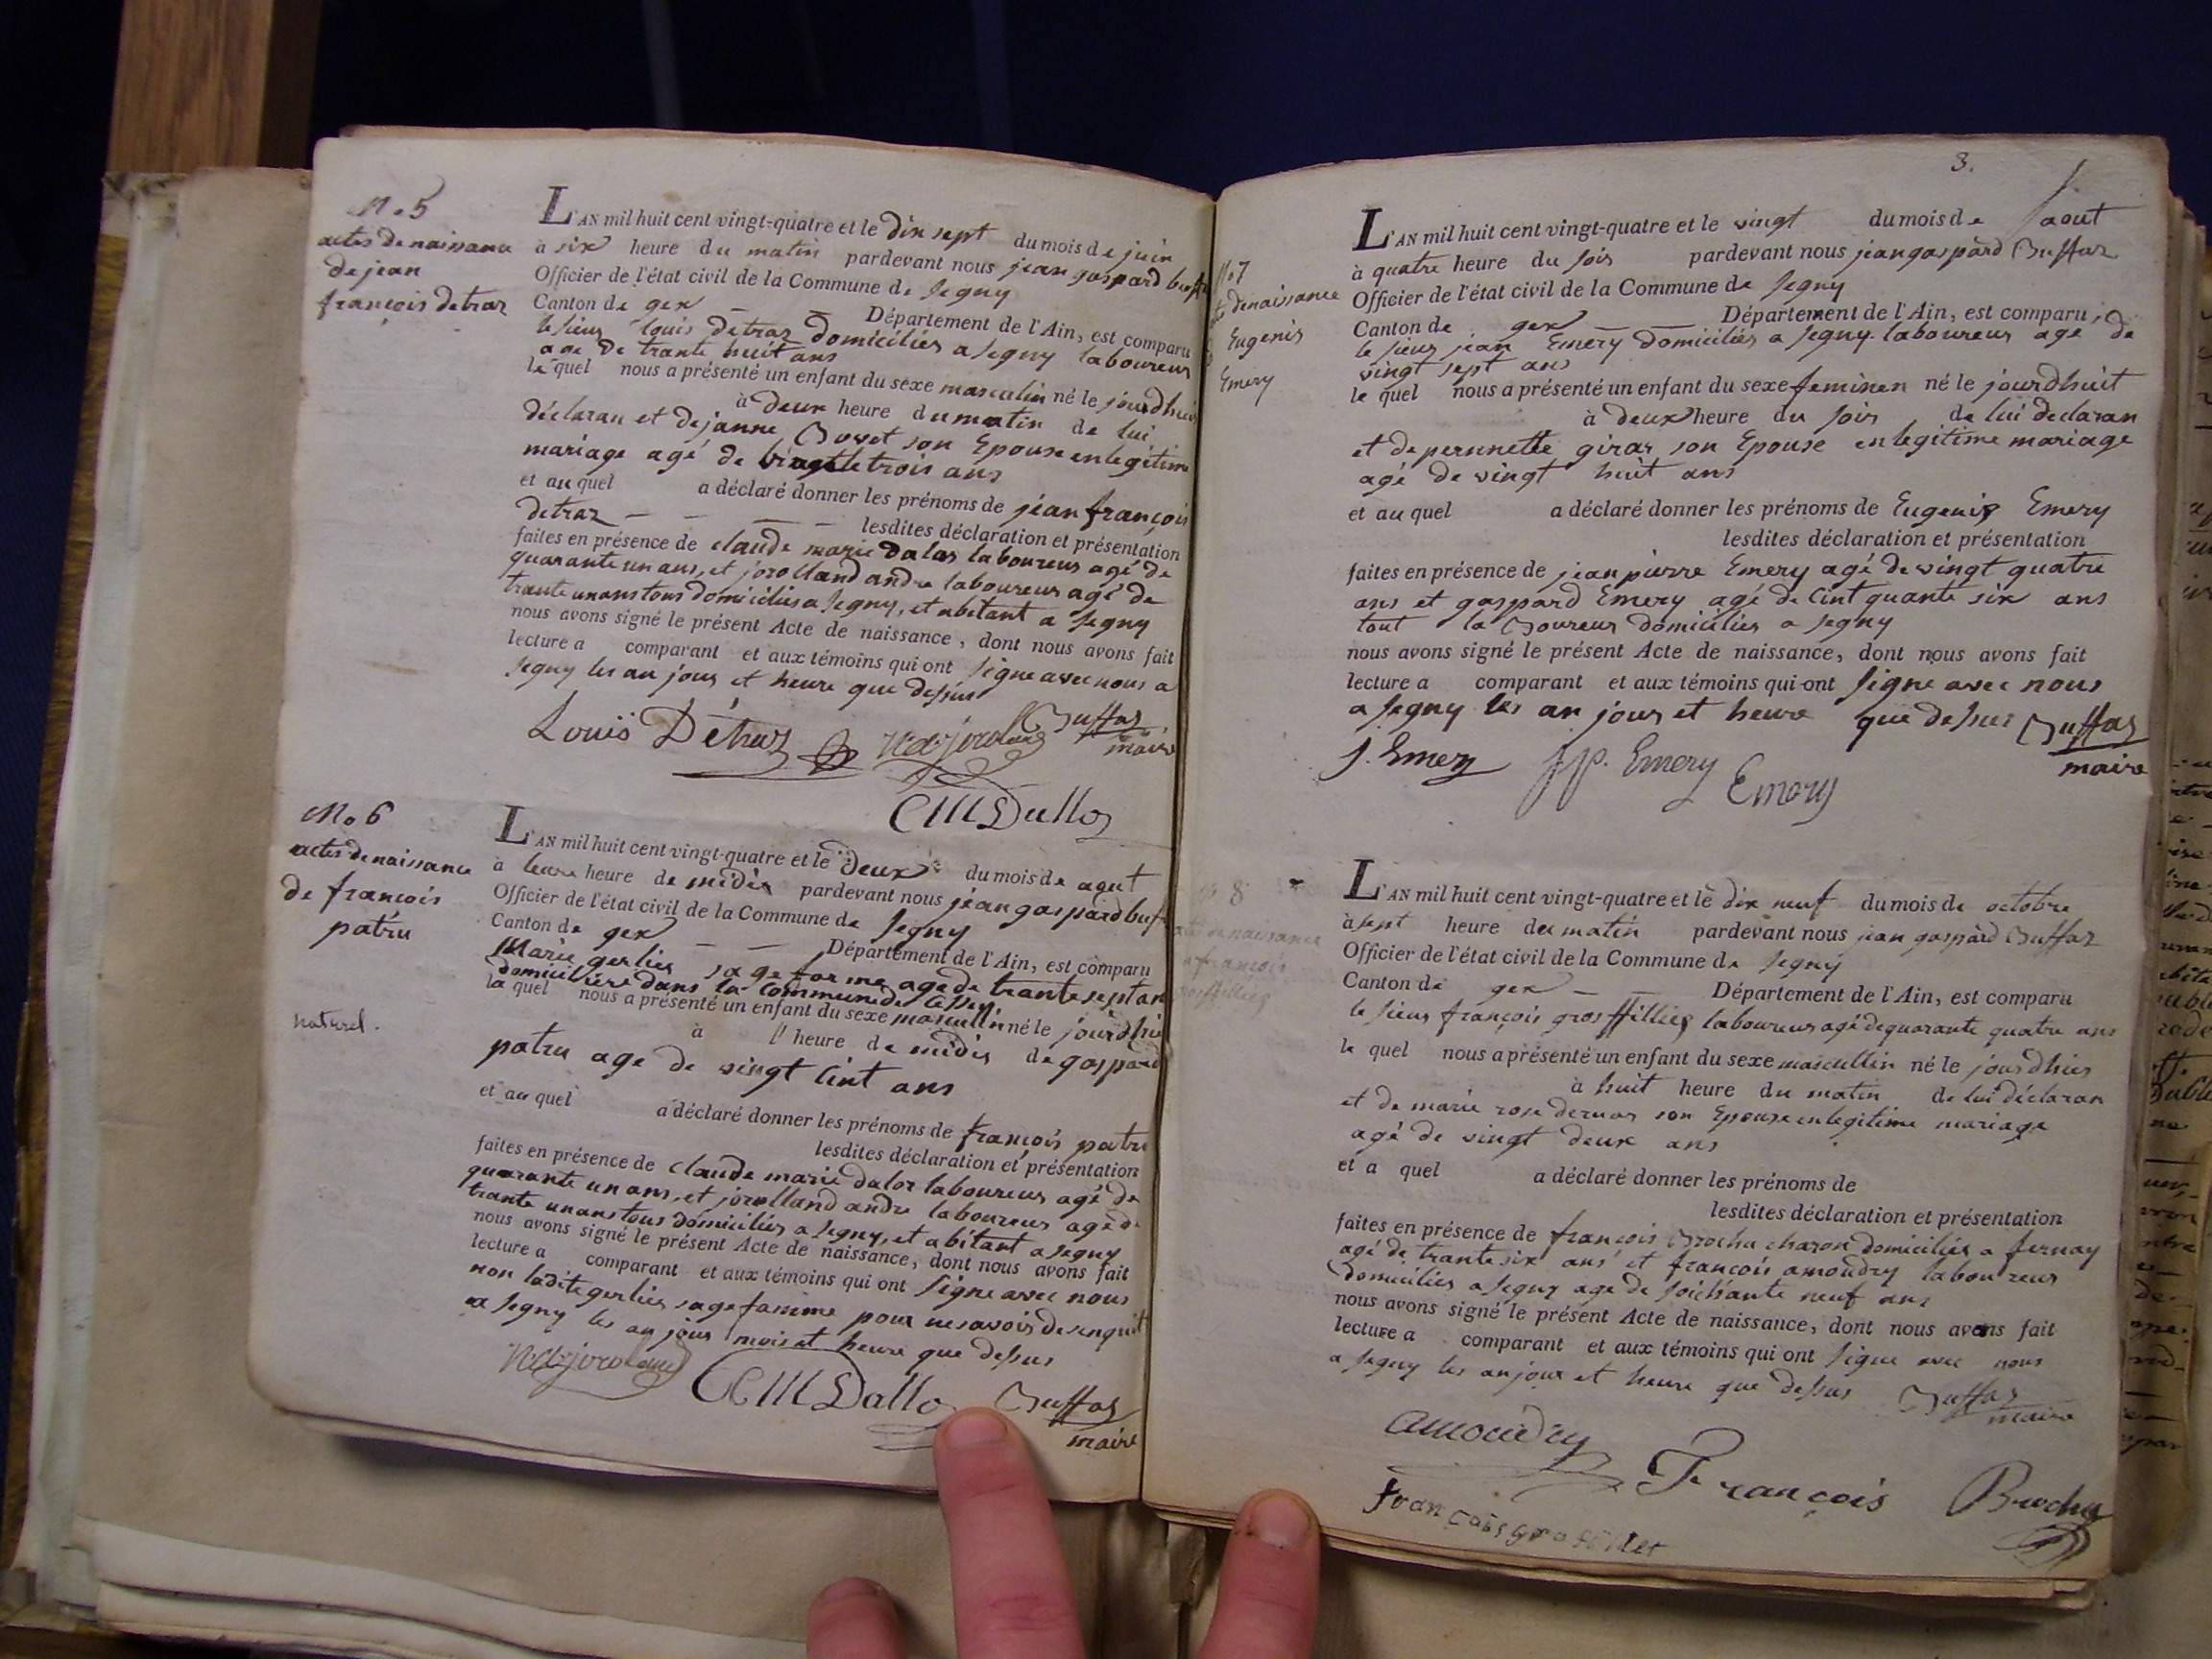 No 5
actes de naissance
de jean
françois detraz
L'AN mil huit cent vingt-quatre et le dix sept du mois de juin
à six heure du matin pardevant nous jean gaspard
Officier de l'état civil de la Commune de segny
Canton de gex Département de l'Ain, est comparu
le sieur louis detraz domiciliés a segny laboureur
age de trante huit ans
le quel nous a présenté un enfant du sexe masculin né le jourdhuis
à deux heure du matin de lui
déclaran et de janne Bovet son Epouse en legitime
mariage agé de vingtetrois ans
et au quel a déclaré donner les prénoms de jéan françois
detraz lesdites déclaration et présentation
faites en présence de claude marie dalos laboureur agé de
quarante un ans, et jorolland andre laboureur agé de
trante un ans tous domiciliés a segny, et abitant a segny
nous avons signé le présent Acte de naissance, dont nous avons fait
lecture a comparant et aux témoins qui ont signe avec nous a
segny les an jour et heure que dessus
Louis Détraz Buffaz
maire
CMDalloz
No 6
actes de naissance
de francois
patru
naturel.
L'AN mil huit cent vingt-quatre et le deux du mois de aout
à heure de midis pardevant nous jéan gaspard
Officier de l'état civil de la Commune de segny
Canton de gex Département de l'Ain, est comparu
Marie gerlier sage famme age de trante sept an
domiciliére dans la Commune de Cessy
la quel nous a présenté un enfant du sexe mascullin né le jourdhui
à heure de midis de gaspard
patru age de vingt cint ans
et au quel a déclaré donner les prénoms de françois patru
lesdites déclaration et présentation
faites en présence de claude marie daloz laboureur agé de
quarante un ans, et jorolland andre laboureur agé de
trante un ans tous domiciliés a segny, et abitant a segny
nous avons signé le présent Acte de naissance, dont nous avons fait
lecture a comparant et aux témoins qui ont signe avec nous
non ladite gerlier sage famme pour ne savoir de
a segny les an jour mois et heure que dessus
CMDalloz Buffaz
maire
3.
No 7
de naissance
Eugenis
Emery
L'AN mil huit cent vingt-quatre et le vingt du mois de aout
à quatre heure du soir pardevant nous jean gaspard Buffaz
Officier de l'état civil de la Commune de segny
Canton de gex Département de l'Ain, est comparu,
le sieur jean Emery domiciliés a segny laboureur age de
vingt sept ans
le quel nous a présenté un enfant du sexe feminen né le jourdhuit
à deux heure du soir de lui declaran
et de pernnette girar son Epouse en legitime mariage
agé de vingt huit ans
et au quel a déclaré donner les prénoms de Eugenis Emery
lesdites déclaration et présentation
faites en présence de jean pierre Emery agé de vingt quatre
ans et gaspard Emery agé de cint quante six ans
tout la Boureur domiciliés a segny
nous avons signé le présent Acte de naissance, dont nous avons fait
lecture a comparant et aux témoins qui ont signe avec nous
a segny les an jour et heure que dessus Buffaz
maire
J. Emery J p. Emery Emery
8
de naissance
françois
L'AN mil huit cent vingt-quatre et le dix neuf du mois de octobre
à sept heure du matin pardevant nous jean gaspard Buffaz
Officier de l'état civil de la Commune de segny
Canton de gex Département de l'Ain, est comparu
le sieur françois grosffilliez laboureur agé de quarante quatre ans
le quel nous a présenté un enfant du sexe mascullin né le jourdhies
à huit heure du matin de lui déclaran
et de marie rose son Epouse en legitime mariage
agé de vingt deux ans
et a quel a déclaré donner les prénoms de
lesdites déclaration et présentation
faites en présence de françois Brochu charon domiciliés a fernay
agé de trante six ans et francois amoudry laboureur
domiciliés a segny age de soichante neuf ans
nous avons signé le présent Acte de naissance, dont nous avons fait
lecture a comparant et aux témoins qui ont signe avec nous
a segny les an jour et heure que dessus Buffaz
maire
amoudry
François Brochu
françois